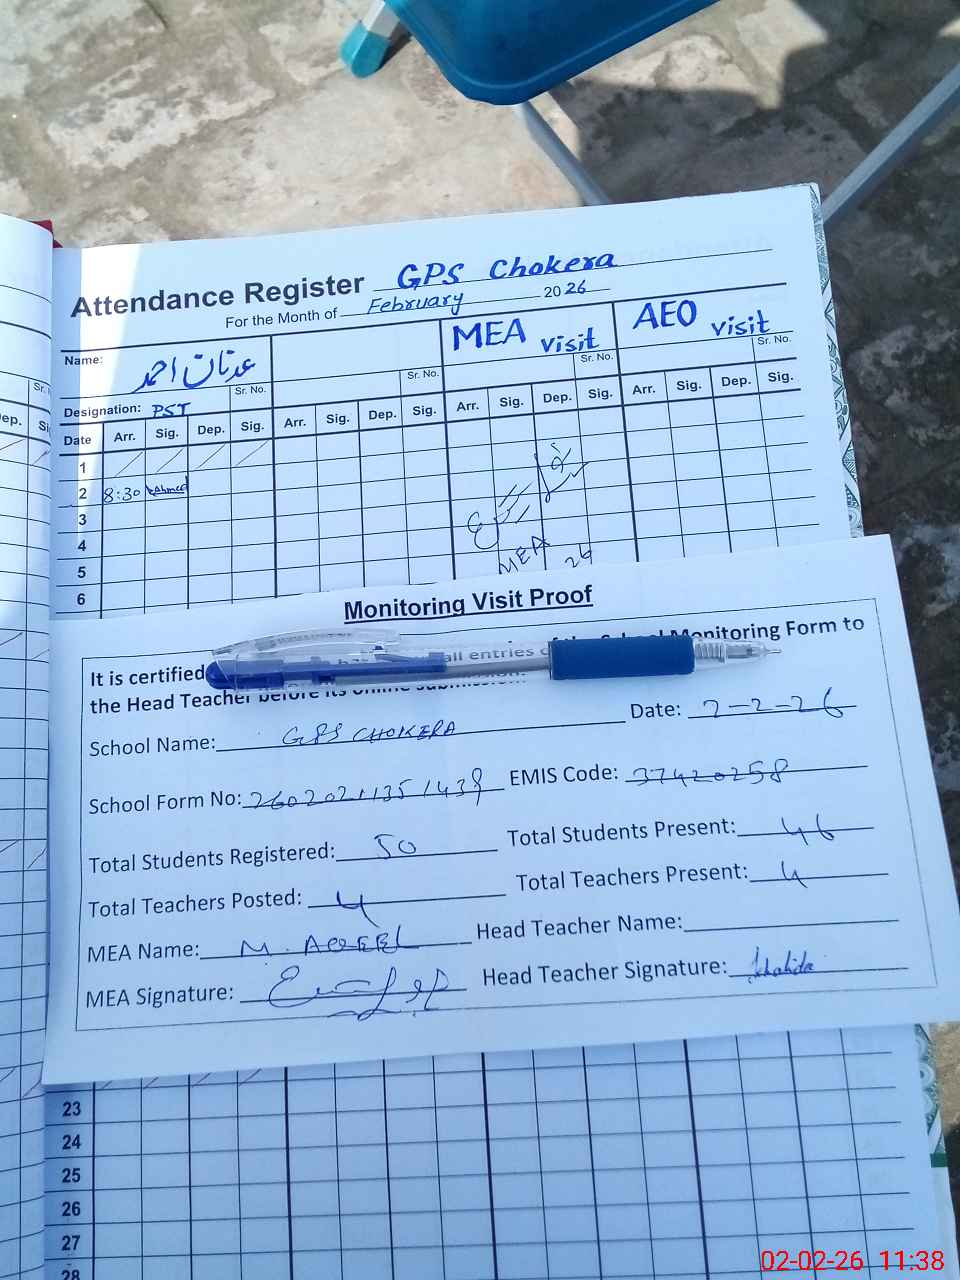 Attendance Register GPS Chokera
For the Month of February 2026
Name: عدنان احمد
MEA visit
AEO visit
Sr. No. Sr. No. Sr. No. Sr. No.
Designation: PST
Date Arr. Sig. Dep. Sig. Arr. Sig. Dep. Sig. Arr. Sig. Dep. Sig. Arr. Sig. Dep. Sig.
1
2 8:30 Ahmed
3
4
5 MEA 26
6
Monitoring Visit Proof
It is certified all entries of the School Monitoring Form to
the Head Teacher before its online submission.
School Name: GPS CHOKERA Date: 2-2-26
School Form No: EMIS Code: 37420258
Total Students Registered: 50 Total Students Present: 46
Total Teachers Posted: 4 Total Teachers Present: 4
MEA Name: M. AQEEL Head Teacher Name:
MEA Signature: Head Teacher Signature: khalida
23
24
25
26
27
28
02-02-26 11:38